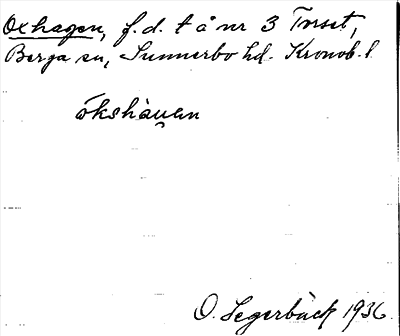 Oxhagen, f.d. t å nr 3 Torset,
Berga sn, Sunnerbo hd. Kronob. l
ókshàu̯an
O. Segerbäck 1936.